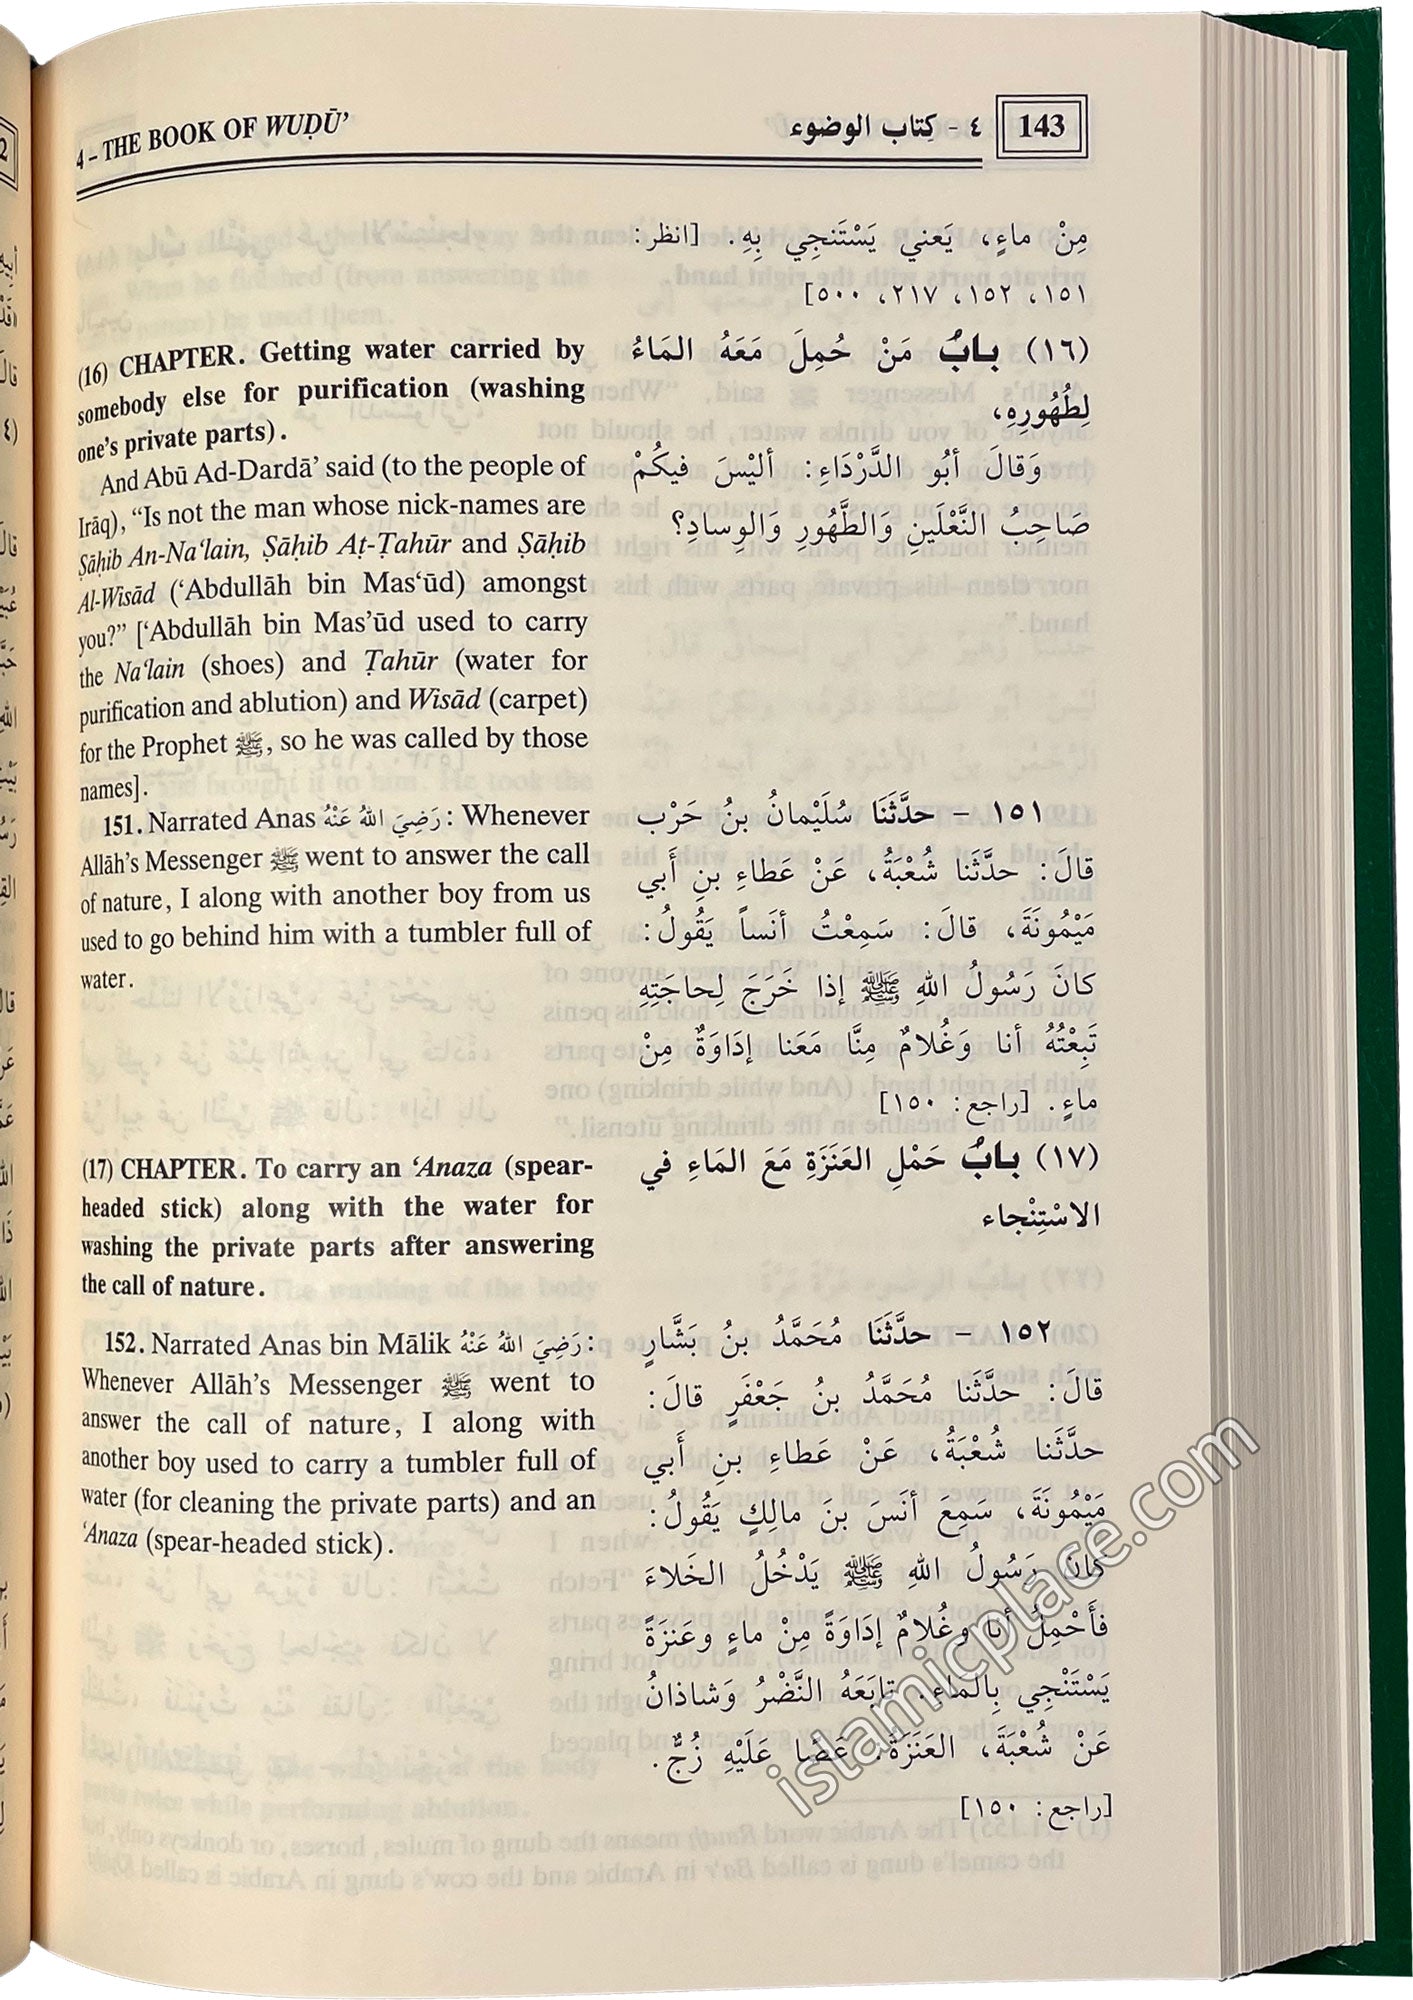 4 – THE BOOK OF WUḌŪ’
٤ - كِتاب الوضوء
143
(16) CHAPTER. Getting water carried by
somebody else for purification (washing
one’s private parts).
And Abū Ad-Dardā’ said (to the people of
Irāq), “Is not the man whose nick-names are
Ṣāḥib An-Na‘lain, Ṣāḥib Aṭ-Ṭahūr and Ṣāḥib
Al-Wisād (‘Abdullāh bin Mas‘ūd) amongst
you?” [‘Abdullāh bin Mas’ūd used to carry
the Na‘lain (shoes) and Ṭahūr (water for
purification and ablution) and Wisād (carpet)
for the Prophet ﷺ, so he was called by those
names].
151. Narrated Anas رَضِيَ اللهُ عَنْهُ: Whenever
Allāh’s Messenger ﷺ went to answer the call
of nature, I along with another boy from us
used to go behind him with a tumbler full of
water.
(17) CHAPTER. To carry an ‘Anaza (spear-
headed stick) along with the water for
washing the private parts after answering
the call of nature.
152. Narrated Anas bin Mālik رَضِيَ اللهُ عَنْهُ:
Whenever Allāh’s Messenger ﷺ went to
answer the call of nature, I along with
another boy used to carry a tumbler full of
water (for cleaning the private parts) and an
‘Anaza (spear-headed stick).
مِنْ ماءٍ، يَعني يَسْتَنجِي بِهِ. [انظر:
١٥١، ١٥٢، ٢١٧، ٥٠٠]
(١٦) بابُ مَنْ حُمِلَ مَعَهُ المَاءُ
لِطُهُورِهِ،
وَقالَ أبُو الدَّرْدَاءِ: أليْسَ فيكُمْ
صَاحِبُ النَّعْلَينِ وَالطَّهُورِ وَالوِسادِ؟
١٥١ - حدَّثَنَا سُلَيْمانُ بنُ حَرْب
قالَ: حدَّثَنا شُعْبَةُ، عَنْ عَطاءِ بنِ أَبي
مَيْمُونَةَ، قالَ: سَمِعْتُ أنَساً يَقُولُ:
كانَ رَسُولُ اللهِ ﷺ إذا خَرَجَ لِحاجَتِهِ
تَبِعْتُهُ أنا وَغُلامٌ مِنَّا مَعَنا إدَاوَةٌ مِنْ
ماءٍ. [راجع: ١٥٠]
(١٧) بابُ حَمْلِ العَنَزَةِ مَعَ المَاءِ في
الاسْتِنْجاء
١٥٢ - حدَّثَنَا مُحَمَّدُ بنُ بَشَّارٍ
قالَ: حدَّثَنا مُحَمَّدُ بنُ جَعْفَرٍ قالَ:
حدَّثَنا شُعْبَةُ، عَنْ عَطاءِ بنِ أَبي
مَيْمُونَةَ، سَمِعَ أنَسَ بنَ مالِكٍ يَقُولُ:
كانَ رَسُولُ اللهِ ﷺ يَدْخُلُ الخَلاءَ
فأَحْمِلُ أنا وغُلامٌ إدَاوَةً مِنْ ماءٍ وعَنزَةً
يَسْتَنْجِي بِالمَاءِ. تابَعَهُ النَّضْرُ وَشاذانُ
عَنْ شُعْبَةَ، العَنَزَةُ: عَصَا عَلَيْهِ زُجٌّ.
[راجع: ١٥٠]
islamicplace.com